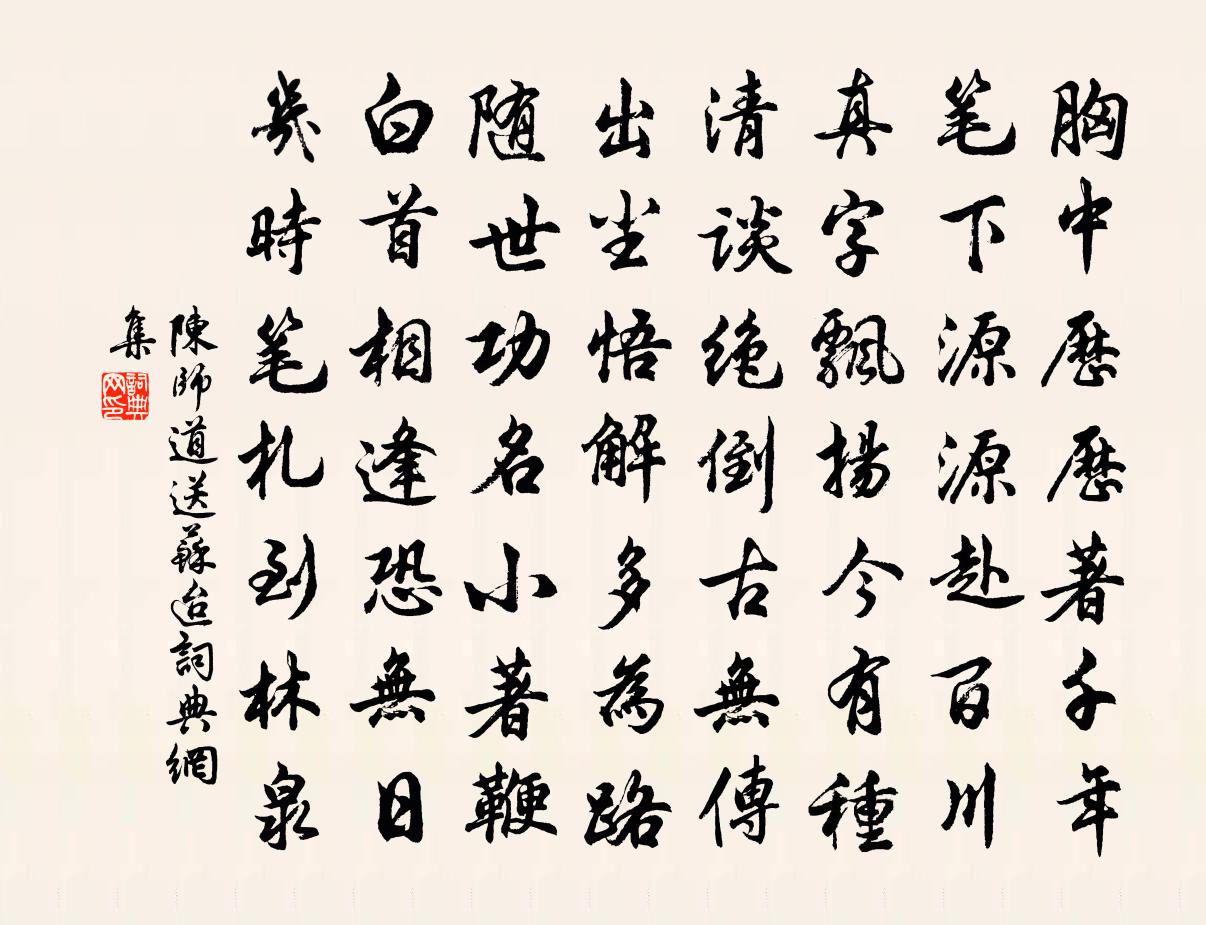 胸中歷歷著千年
笔下源源赴百川
真字飄揚今有種
清谈绝倒古無傳
出尘悟解多為路
随世功名小著鞭
白首相逢恐無日
幾時笔札到林泉
陳師道送蘇迨詞典網
集
詞典网印